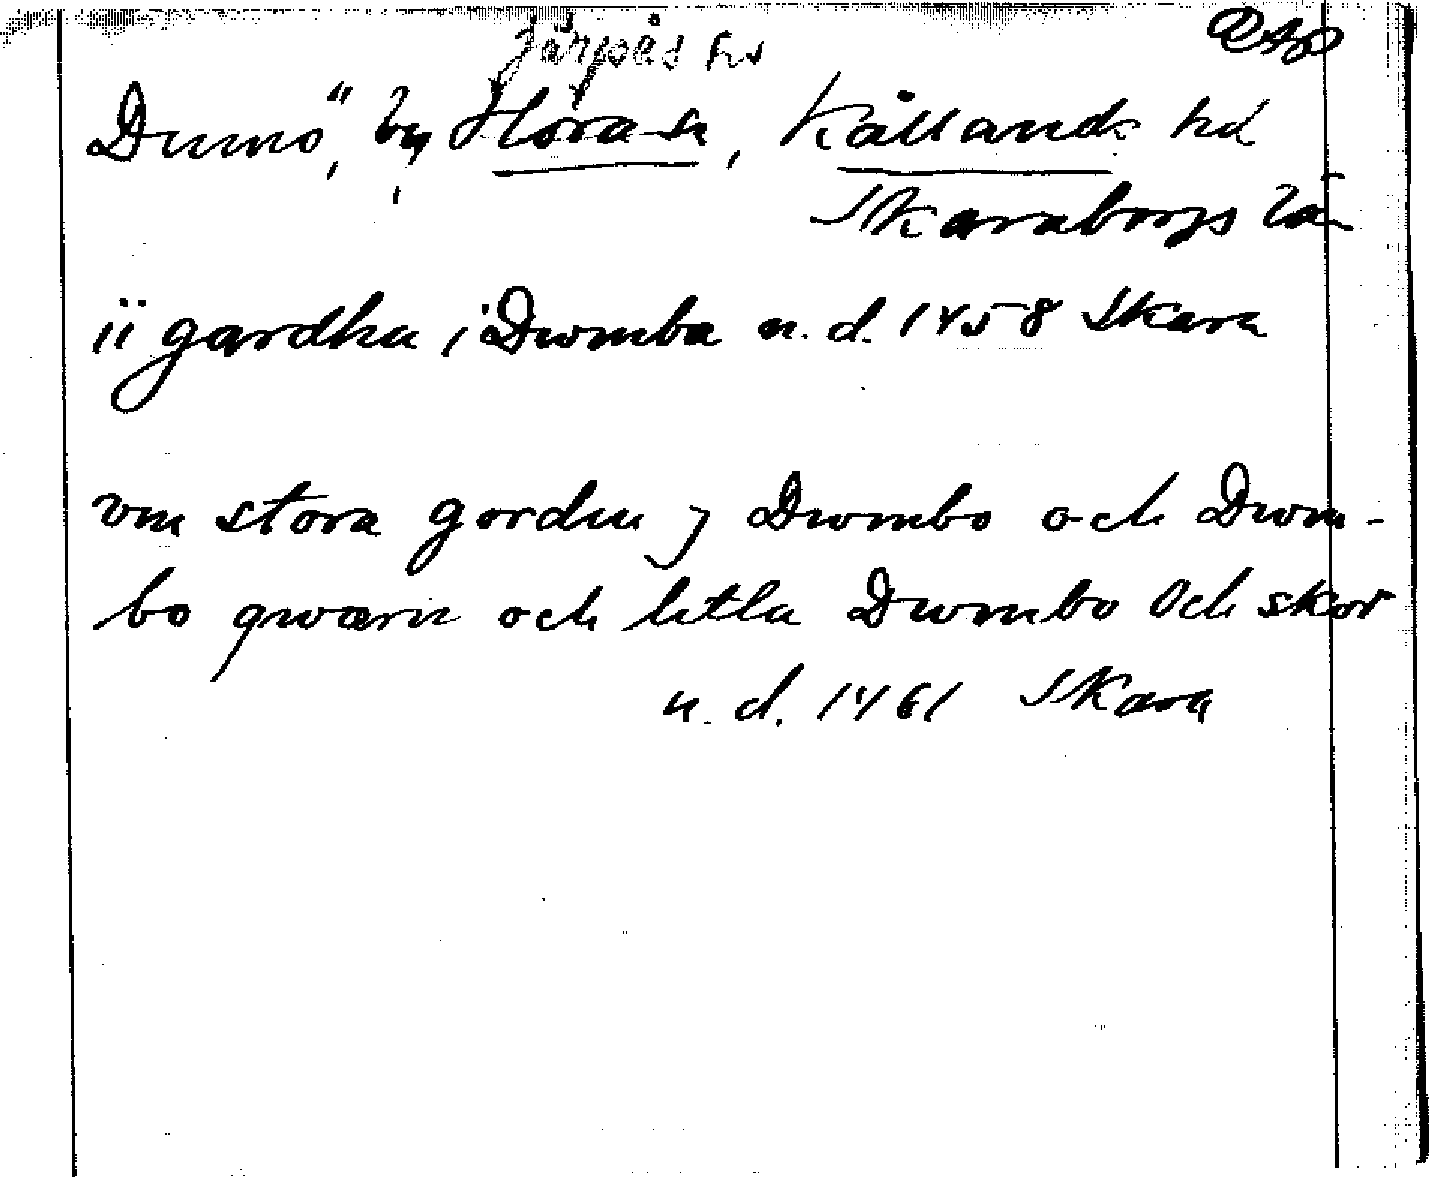 Järpås sn
Dumö, by Hova sn, Kållands hd
Skaraborgs län
ii gardha i Dwmba n. d. 1458 Skara
vm stora gorden j Dwmbo och Dwm-
bo qwærn och letla Dwmbo och skor
n. d. 1461 Skara